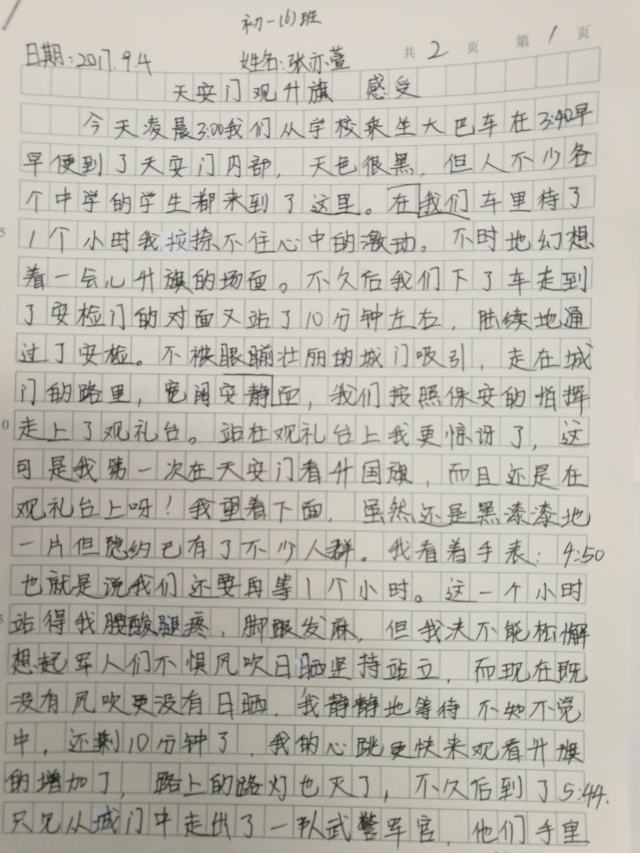 初一(6)班
共2页 第1页
日期:2017.9.4 姓名:张亦萱
天安门观升旗 感受
今天凌晨3:00我们从学校乘坐大巴车在3:40早
早便到了天安门内部，天色很黑，但人不少各
个中学的学生都来到了这里。在我们车里待了
1个小时我按捺不住心中的激动。不时地幻想
着一会儿升旗的场面。不久后我们下了车走到
了安检门的对面又站了10分钟左右，陆续地通
过了安检。不被眼前壮丽的城门吸引，走在城
门的路里，宽阔安静而，我们按照保安的指挥
走上了观礼台。站在观礼台上我更惊讶了，这
可是我第一次在天安门看升国旗，而且还是在
观礼台上呀！我望着下面，虽然还是黑漆漆地
一片但隐约已有了不少人群。我看着手表：4:50
也就是说我们还要再等1个小时。这一个小时
站得我腰酸腿疼，脚跟发麻，但我决不能松懈
想起军人们不惧风吹日晒坚持站立，而现在既
没有风吹更没有日晒，我静静地等待不知不觉
中，还剩10分钟了，我的心跳更快来观看升旗
的增加了，路上的路灯也灭了，不久后到了5:44.
只见从城门中走出了一队武警军官，他们手里